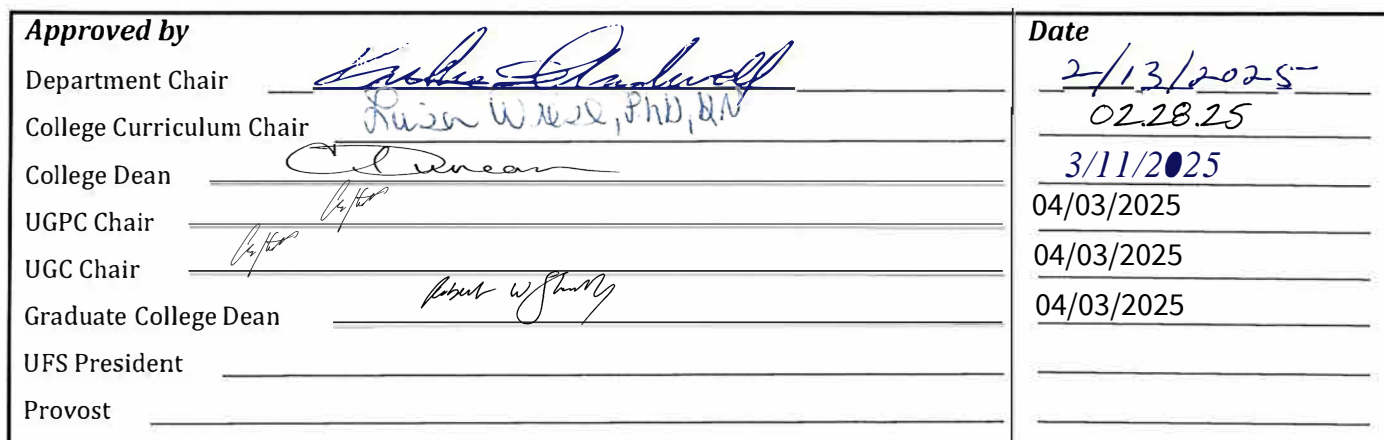 Approved by Date
Department Chair 2/13/2025
College Curriculum Chair PhD, RN 02.28.25
College Dean Duncan 3/11/2025
UGPC Chair 04/03/2025
UGC Chair 04/03/2025
Graduate College Dean Robert W 04/03/2025
UFS President
Provost